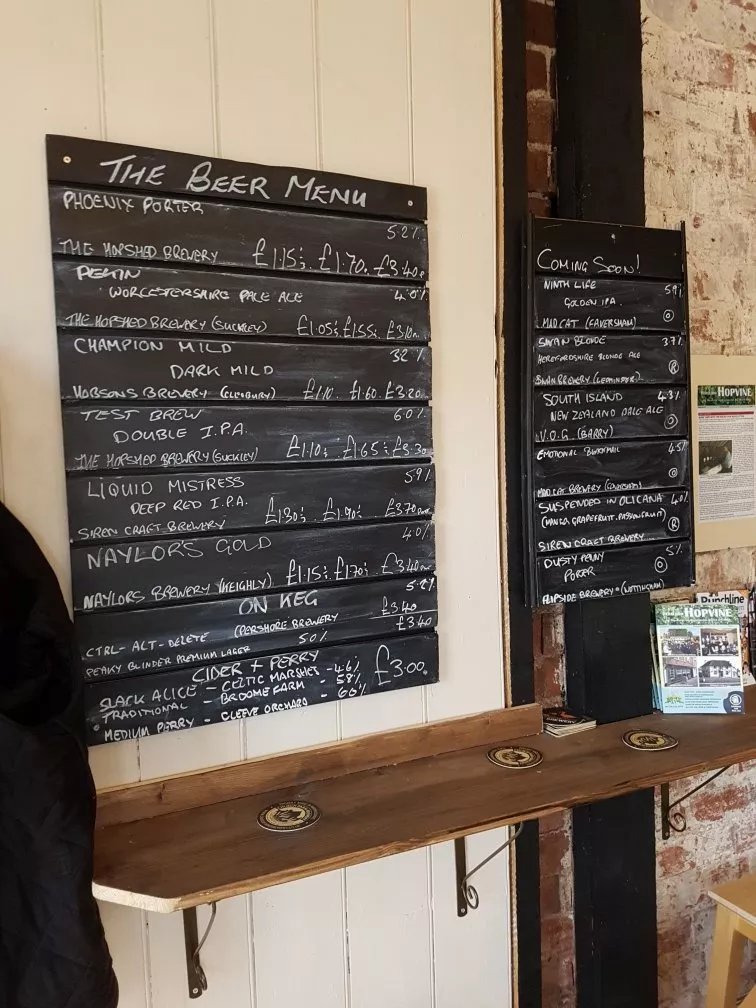 THE BEER MENU
PHOENIX PORTER
5.2%
THE HOPSHED BREWERY £1.15 £1.70 £3.40
WORCESTERSHIRE PALE ALE 4.0%
THE HOPSHED BREWERY (SUCKLEY) £1.05 £1.55 £3.10
CHAMPION MILD 3.2%
DARK MILD
HOBSONS BREWERY £1.10 £1.60 £3.20
TEST BREW 6.0%
DOUBLE I.P.A.
THE HOPSHED BREWERY (SUCKLEY) £1.10 £1.65 £3.30
LIQUID MISTRESS 5.9%
DEEP RED I.P.A.
SIREN CRAFT BREWERY £1.30 £1.90 £3.70
NAYLOR'S GOLD 4.0%
NAYLORS BREWERY (KEIGHLY) £1.15 £1.70 £3.40
ON KEG 5.2%
CTRL-ALT-DELETE (PERSHORE BREWERY £3.40
PEAKY BLINDER PREMIUM LAGER 5.0% £3.40
CIDER + PERRY
SLACK ALICE - CELTIC MARSHES - 4.6% £3.00
TRADITIONAL - BROOME FARM - 5.8%
MEDIUM PERRY - CLEEVE ORCHARD - 6.0%
COMING SOON!
NINTH LIFE 5.9%
GOLDEN IPA
MAD CAT (FAVERSHAM)
SWAN BLONDE 3.7%
HEREFORDSHIRE BLONDE ALE
SWAN BREWERY (LEOMINSTER)
SOUTH ISLAND 4.3%
NEW ZEALAND PALE ALE
V.O.G. (BARRY)
EMOTIONAL BLACKMAIL 4.5%
MAD CAT BREWERY (FAVERSHAM)
SUSPENDED IN OLICANA 4.0%
(MANGO, GRAPEFRUIT, PASSIONFRUIT)
SIREN CRAFT BREWERY
DUSTY PENNY 5%
PORTER
FLIPSIDE BREWERY (NOTTINGHAM)
HOPVINE
Punchline
HOPVINE